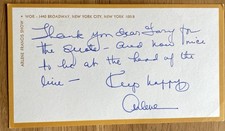 ARLENE FRANCIS SHOW • WOR - 1440 BROADWAY, NEW YORK CITY, NEW YORK 10018
Thank you dear Gary for
the quote - and how nice
to be at the head of the
line - Keep happy
Arlene